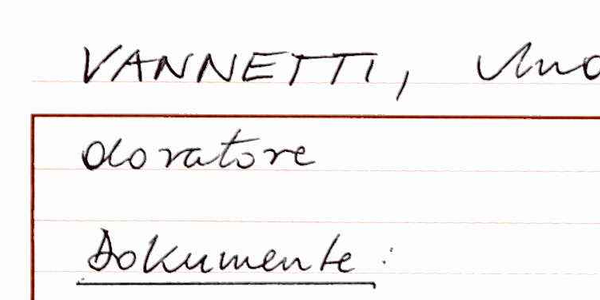 VANNETTI,
doratore
Dokumente: